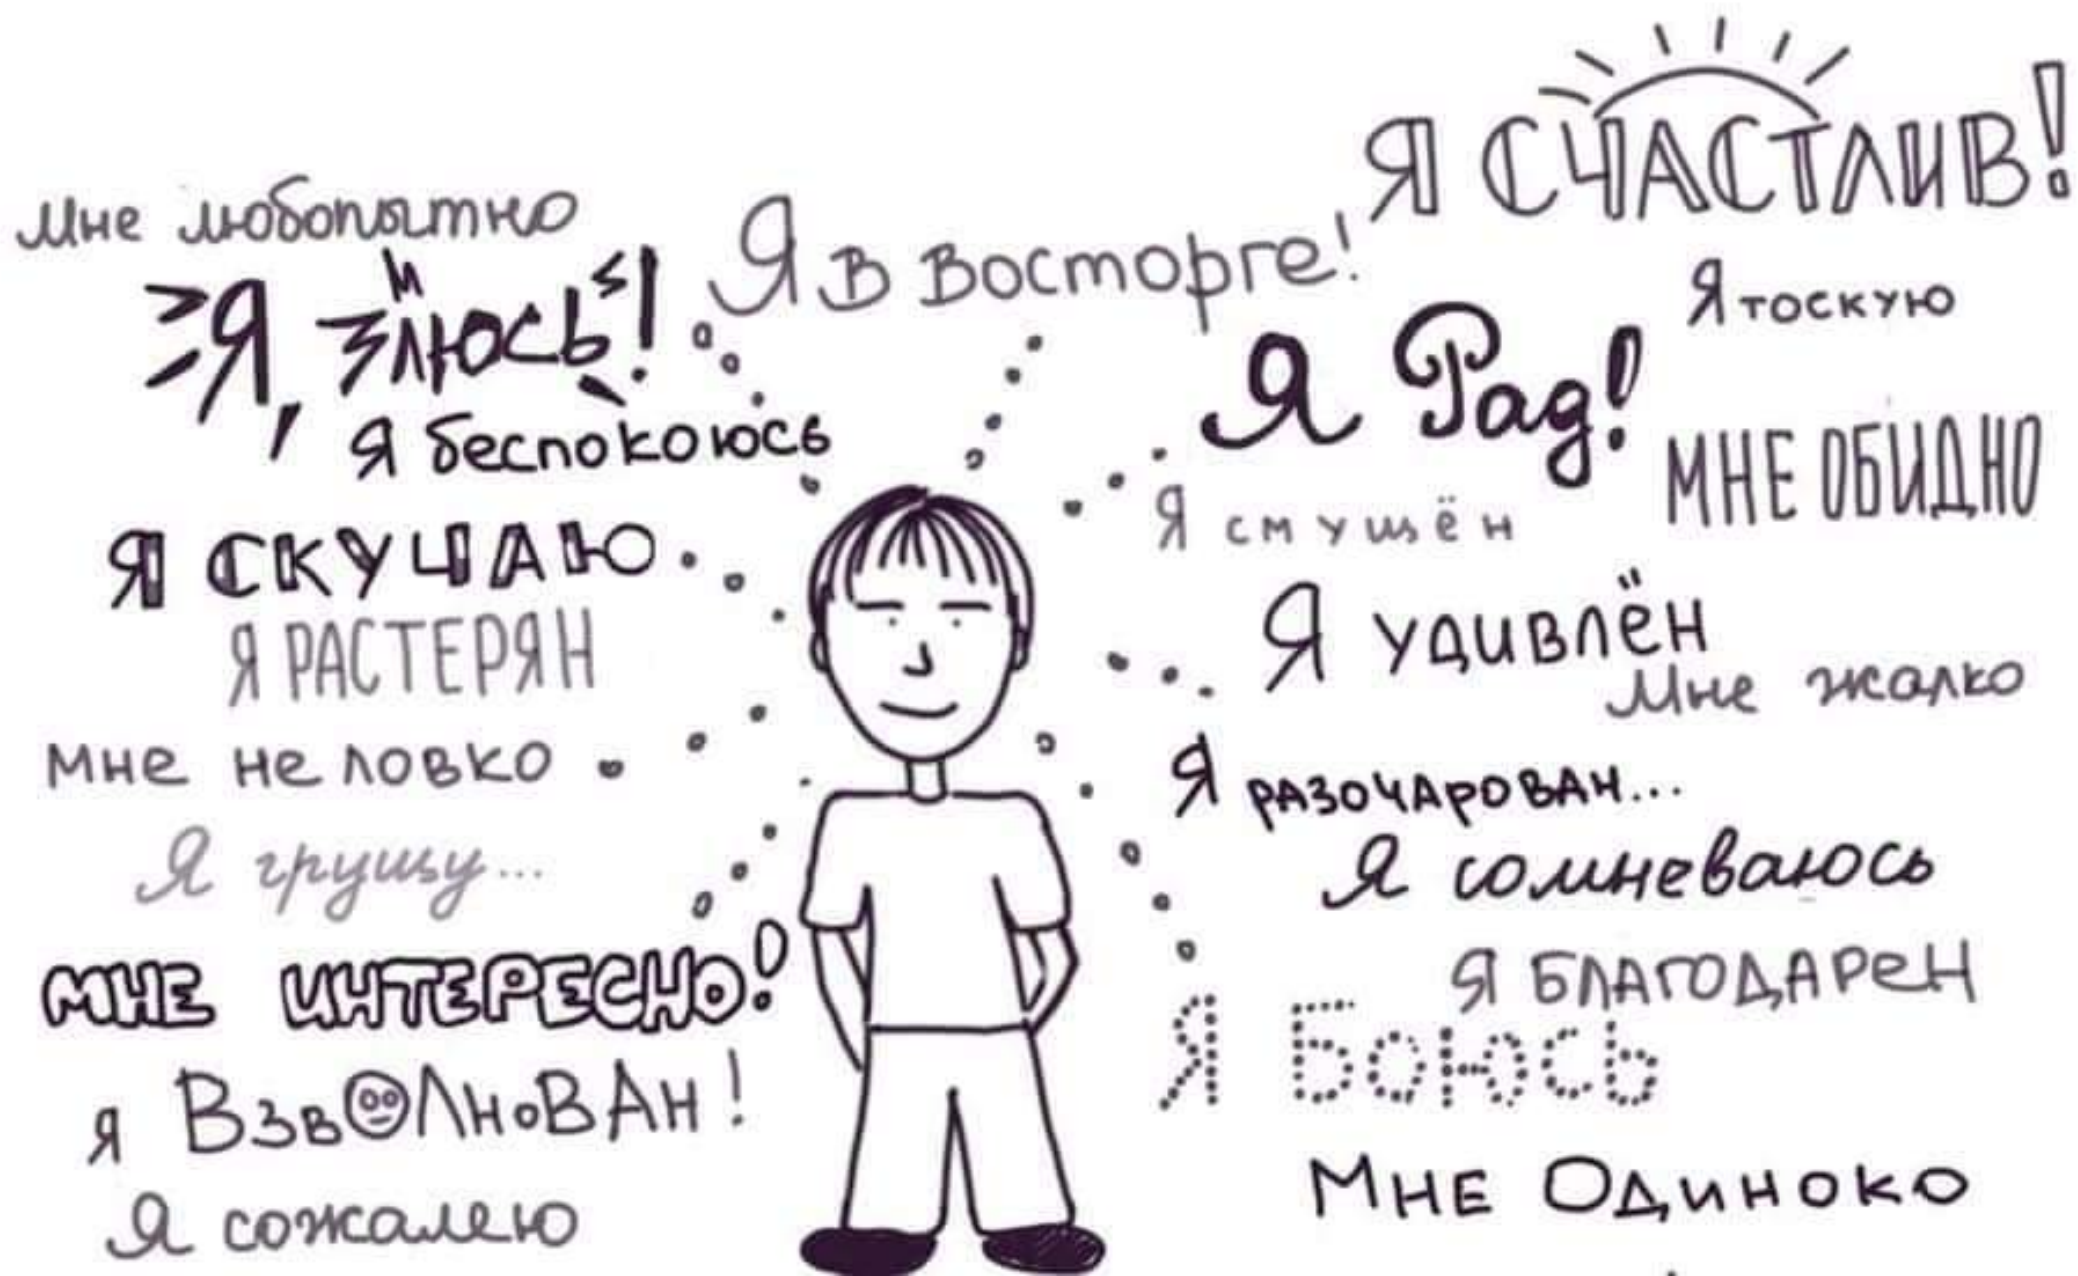 Мне любопытно
Я злюсь!
Я беспокоюсь
Я СКУЧАЮ
Я РАСТЕРЯН
Мне неловко
Я грущу...
МНЕ ИНТЕРЕСНО!
Я ВЗВОЛНОВАН!
Я сожалею
Я в восторге!
Я СЧАСТЛИВ!
Я тоскую
Я Рад!
МНЕ ОБИДНО
Я смущён
Я удивлён
Мне жалко
Я РАЗОЧАРОВАН...
Я сомневаюсь
Я БЛАГОДАРЕН
Я Боюсь
МНЕ ОДИНОКО